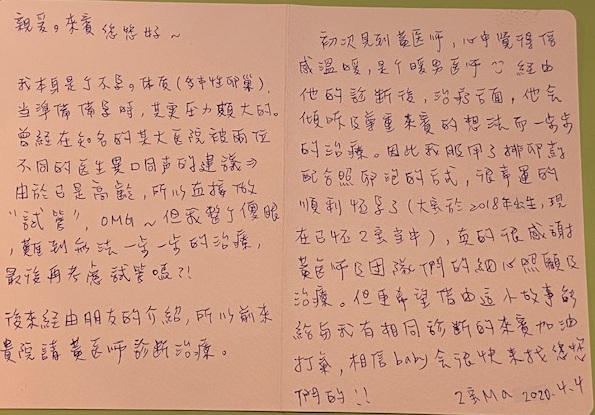 親愛。來賓您您好～
我本身是个不孕。体質（多囊性卵巢）
當準備備孕時，其實压力頗大的。
曾經在知名的某大医院被兩位
不同的医生異口同声的建議⇒
由於已是高齡，所以直接做
"試管"，OMG～但我整个傻眼
，難到無法一步一步的治療，
最後再考慮試管嗎？！
後來經由朋友的介紹，所以前來
貴院請黃医师診断治療。
初次見到黃医师，心中覺得倍
感溫暖，是个暖男医师 經由
他的診断後，治療方面，他会
傾听及尊重來賓的想法而一步步
的治療。因此我服用了排卵藥
配合照卵泡的方式，很幸運的
順利怀孕了（大寶於2018年出生，現
在已怀2寶當中），真的很感謝
黃医师及団隊們的細心照顧及
治療。但更希望借由這小故事能
給与我有相同診断的來賓加油
打氣，相信baby会很快來找您您
們的！！
2寶Ma 2020.4.4